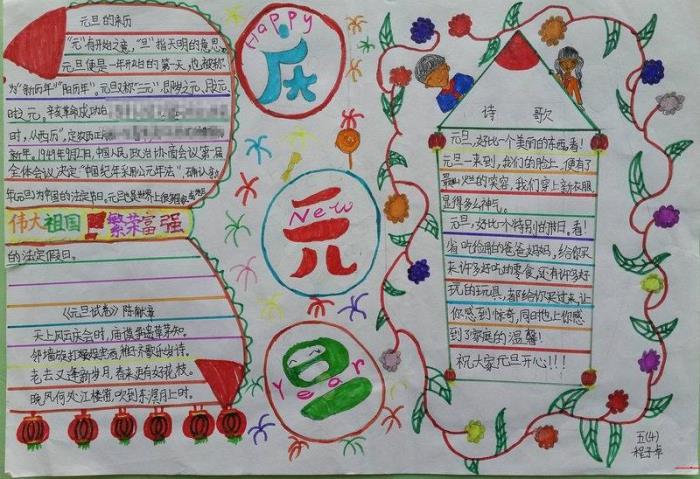 元旦的来历
"元"有开始之意，"旦"指天明的意思
元旦便是一年开始的第一天，也被称
为"新历年""阳历年"。元旦又称"三元"，即岁之元、月之元、
时之元。辛亥革命成功
时，从西历"，定农历正
新年。1949年9月27日，中国人民政治协商会议第一届
全体会议决定"中国纪年采用公元年法"，确认
年元旦)为中国的法定节日。元旦也是世界上很多
伟大祖国 繁荣富强
的法定假日。
《元旦试卷》陈献章
天上风云庆会时，庙谟争遗草茅知。
邻墙旋打娱宾酒，稚子齐歌乐岁诗。
老去又逢新岁月，春来更有好花枝。
晚风何处江楼笛，吹到东溟月上时。
Happy
庆
New
元
Year
旦
诗 歌
元旦，好比一个美丽的东西，看！
元旦一来到，我们的脸上，便有了
最灿烂的笑容，我们穿上新衣服
显得多么神气。
元旦，好比个特别的节日，看！
省吃俭用的爸爸妈妈，给你买
来许多好吃的零食，还有许多好
玩的玩具，都给你买过来，让
你感到惊奇，同时也上你感
到了家庭的温馨！
祝大家元旦开心！！！
五(4)
程子卓